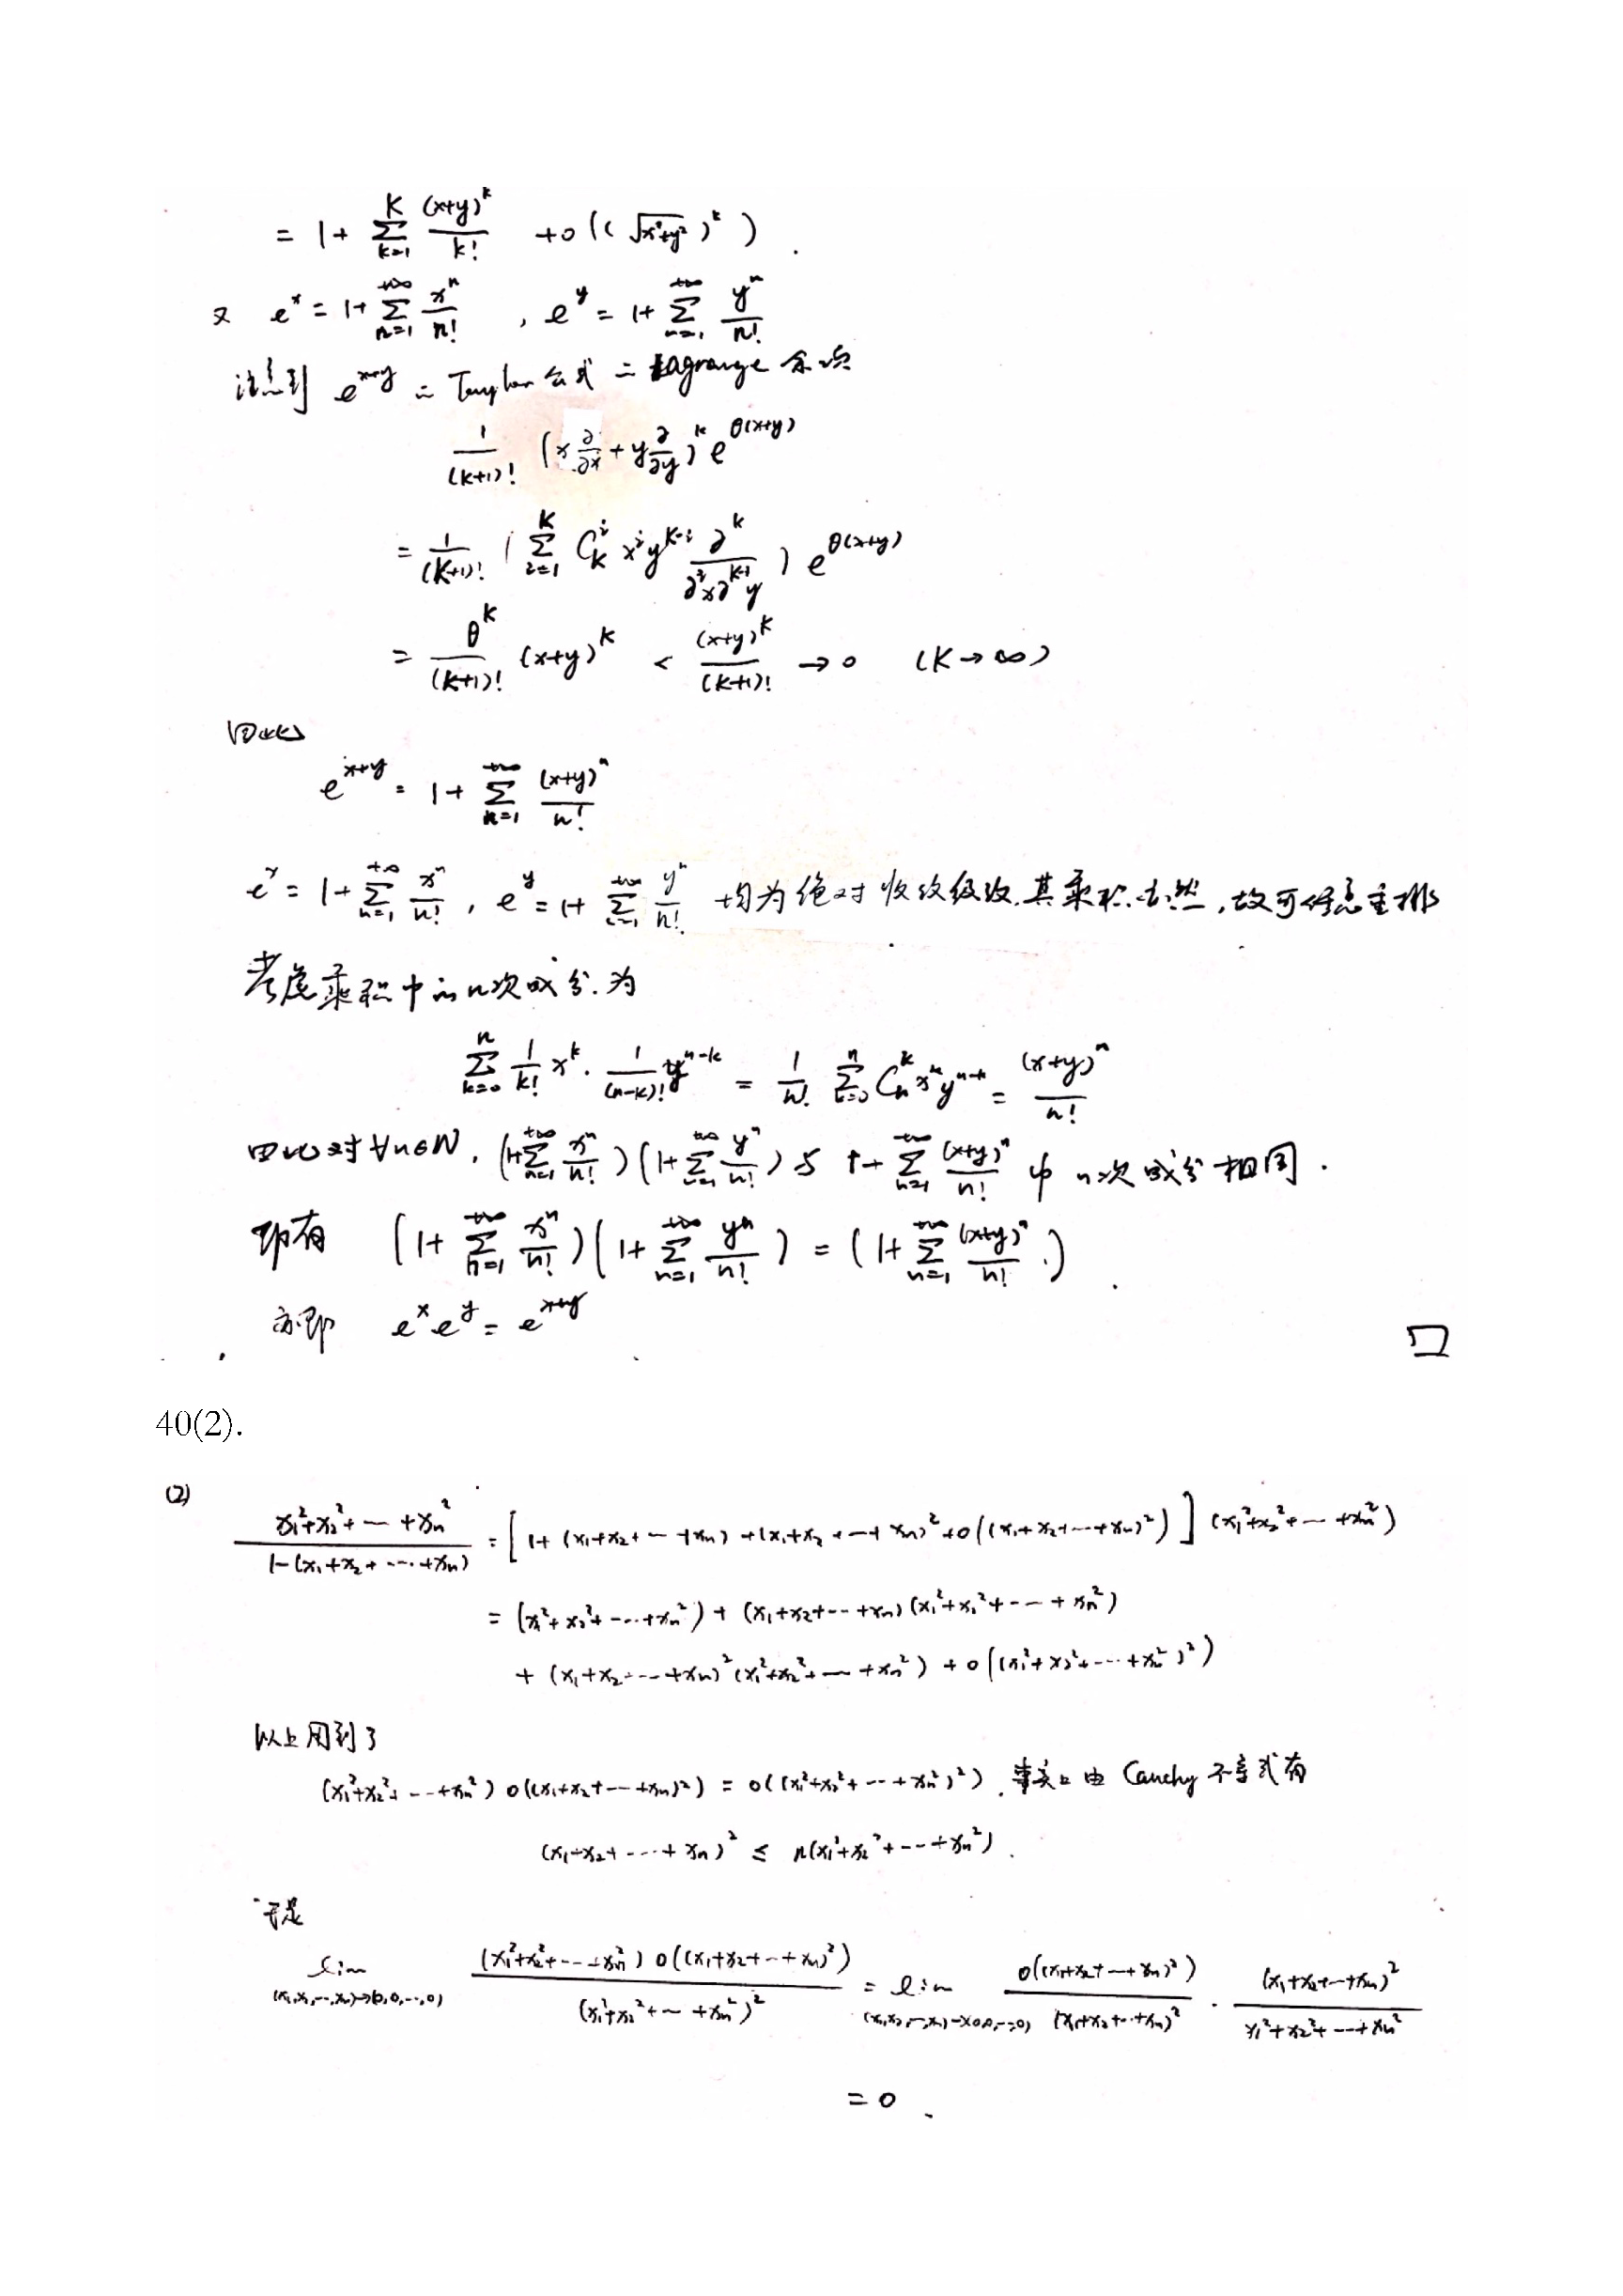 = 1 + \sum_{k=1}^{K} \frac{(x+y)^k}{k!} + o((\sqrt{x^2+y^2})^k).
又 e^x = 1 + \sum_{n=1}^{+\infty} \frac{x^n}{n!}, e^y = 1 + \sum_{n=1}^{+\infty} \frac{y^n}{n!}
注意到 e^{x+y} 之 Taylor 公式之 Lagrange 余项
\frac{1}{(k+1)!} (x\frac{\partial}{\partial x} + y\frac{\partial}{\partial y})^k e^{\theta(x+y)}
= \frac{1}{(K+1)!} (\sum_{i=1}^{K} C_K^i x^i y^{K-i} \frac{\partial^k}{\partial^i x \partial^{k-i} y}) e^{\theta(x+y)}
= \frac{\theta^K}{(k+1)!} (x+y)^K < \frac{(x+y)^K}{(k+1)!} → 0 (K → ∞)
因此
e^{x+y} = 1 + \sum_{n=1}^{+\infty} \frac{(x+y)^n}{n!}
e^x = 1 + \sum_{n=1}^{+\infty} \frac{x^n}{n!}, e^y = 1 + \sum_{n=1}^{+\infty} \frac{y^n}{n!} 均为绝对收敛级数,其乘积亦然,故可任意重排
考虑乘积中的n次成分.为
\sum_{k=0}^{n} \frac{1}{k!} x^k · \frac{1}{(n-k)!} y^{n-k} = \frac{1}{n!} \sum_{k=0}^{n} C_n^k x^k y^{n-k} = \frac{(x+y)^n}{n!}
因此对 ∀n∈N, (1+\sum_{n=1}^{+\infty} \frac{x^n}{n!})(1+\sum_{n=1}^{+\infty} \frac{y^n}{n!}) 与 1+\sum_{n=1}^{+\infty} \frac{(x+y)^n}{n!} 中 n次成分相同.
即有 (1+\sum_{n=1}^{+\infty} \frac{x^n}{n!})(1+\sum_{n=1}^{+\infty} \frac{y^n}{n!}) = (1+\sum_{n=1}^{+\infty} \frac{(x+y)^n}{n!}).
亦即 e^x e^y = e^{x+y} □
40(2).
(2) \frac{x_1^2+x_2^2+⋯+x_n^2}{1-(x_1+x_2+⋯+x_n)} = [1+(x_1+x_2+⋯+x_n)+(x_1+x_2+⋯+x_n)^2+o((x_1+x_2+⋯+x_n)^2)](x_1^2+x_2^2+⋯+x_n^2)
= (x_1^2+x_2^2+⋯+x_n^2)+(x_1+x_2+⋯+x_n)(x_1^2+x_1^2+⋯+x_n^2)
+(x_1+x_2+⋯+x_n)^2(x_1^2+x_2^2+⋯+x_n^2)+o((x_1^2+x_2^2+⋯+x_n^2)^2)
以上用到了
(x_1^2+x_2^2+⋯+x_n^2) o((x_1+x_2+⋯+x_n)^2) = o((x_1^2+x_2^2+⋯+x_n^2)^2). 事实上由 Cauchy 不等式有
(x_1+x_2+⋯+x_n)^2 ≤ n(x_1^2+x_2^2+⋯+x_n^2).
于是
\lim_{(x_1,x_2,⋯,x_n)→(0,0,⋯,0)} \frac{(x_1^2+x_2^2+⋯+x_n^2) o((x_1+x_2+⋯+x_n)^2)}{(x_1^2+x_2^2+⋯+x_n^2)^2} = \lim_{(x_1,x_2,⋯,x_n)→(0,0,⋯,0)} \frac{o((x_1+x_2+⋯+x_n)^2)}{(x_1+x_2+⋯+x_n)^2} · \frac{(x_1+x_2+⋯+x_n)^2}{x_1^2+x_2^2+⋯+x_n^2}
= 0.